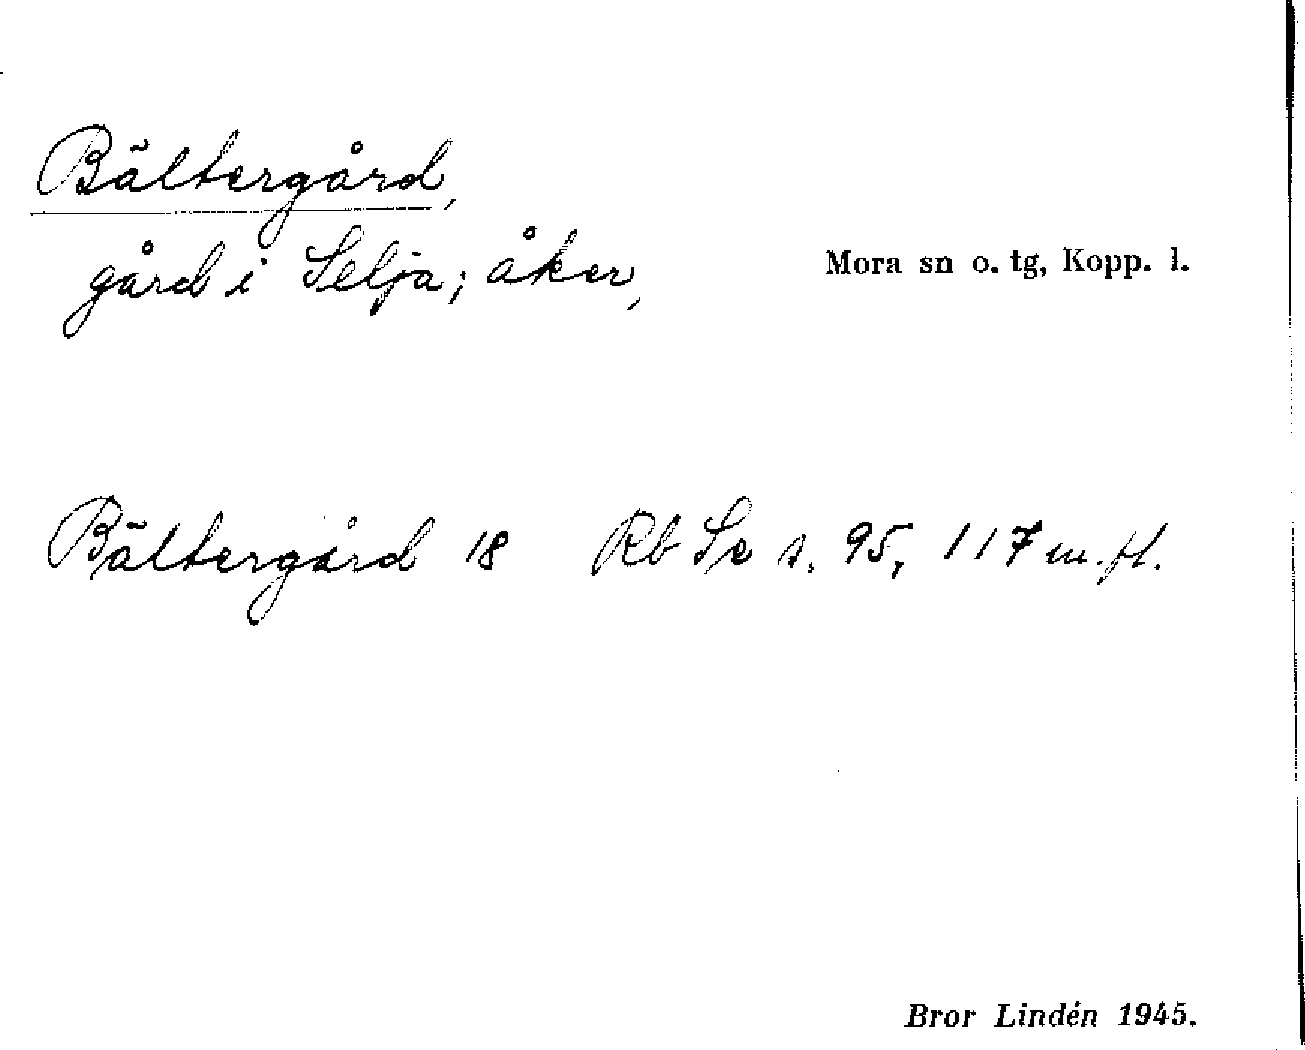 Bältergård,
gård i Selja; åker,
Mora sn o. tg, Kopp. l.
Bältergård 18 Rb Se s. 95, 117 m.fl.
Bror Lindén 1945.